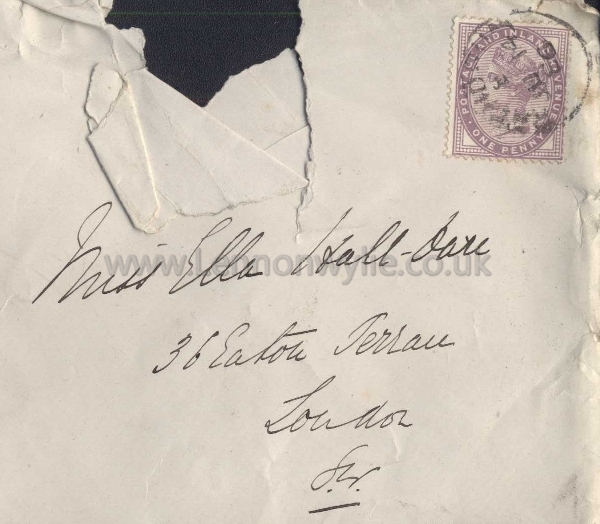 POSTAGE AND INLAND REVENUE
ONE PENNY
Miss Ella Hall-Dare
www.Lennonwylie.co.uk
36 Eaton Terrace
London
S.W.